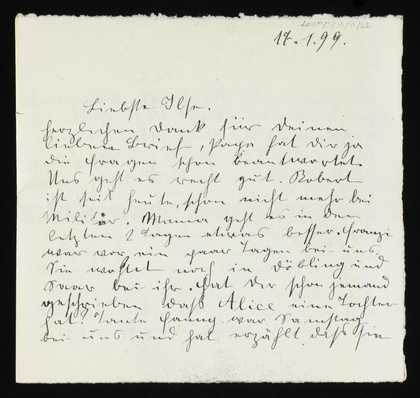 17.1.99.
Liebste Ilse.
herzlichen Dank für Deinen
lieben Brief, Papa hat dir ja
die Fragen schon beantwortet.
Uns geht es recht gut. Robert
ist seit heute, schon nicht mehr bei
Militär. Mama geht es in den
letzten 2 Tagen etwas besser. Franzi
war vor ein paar Tagen bei uns.
Sie wohnt noch in Döbling und
bei ihr. Hat Dir schon jemand
geschrieben dass Alice eine Tochter
hat? Tante Fanny war Samstag
bei uns und hat erzählt dass sie